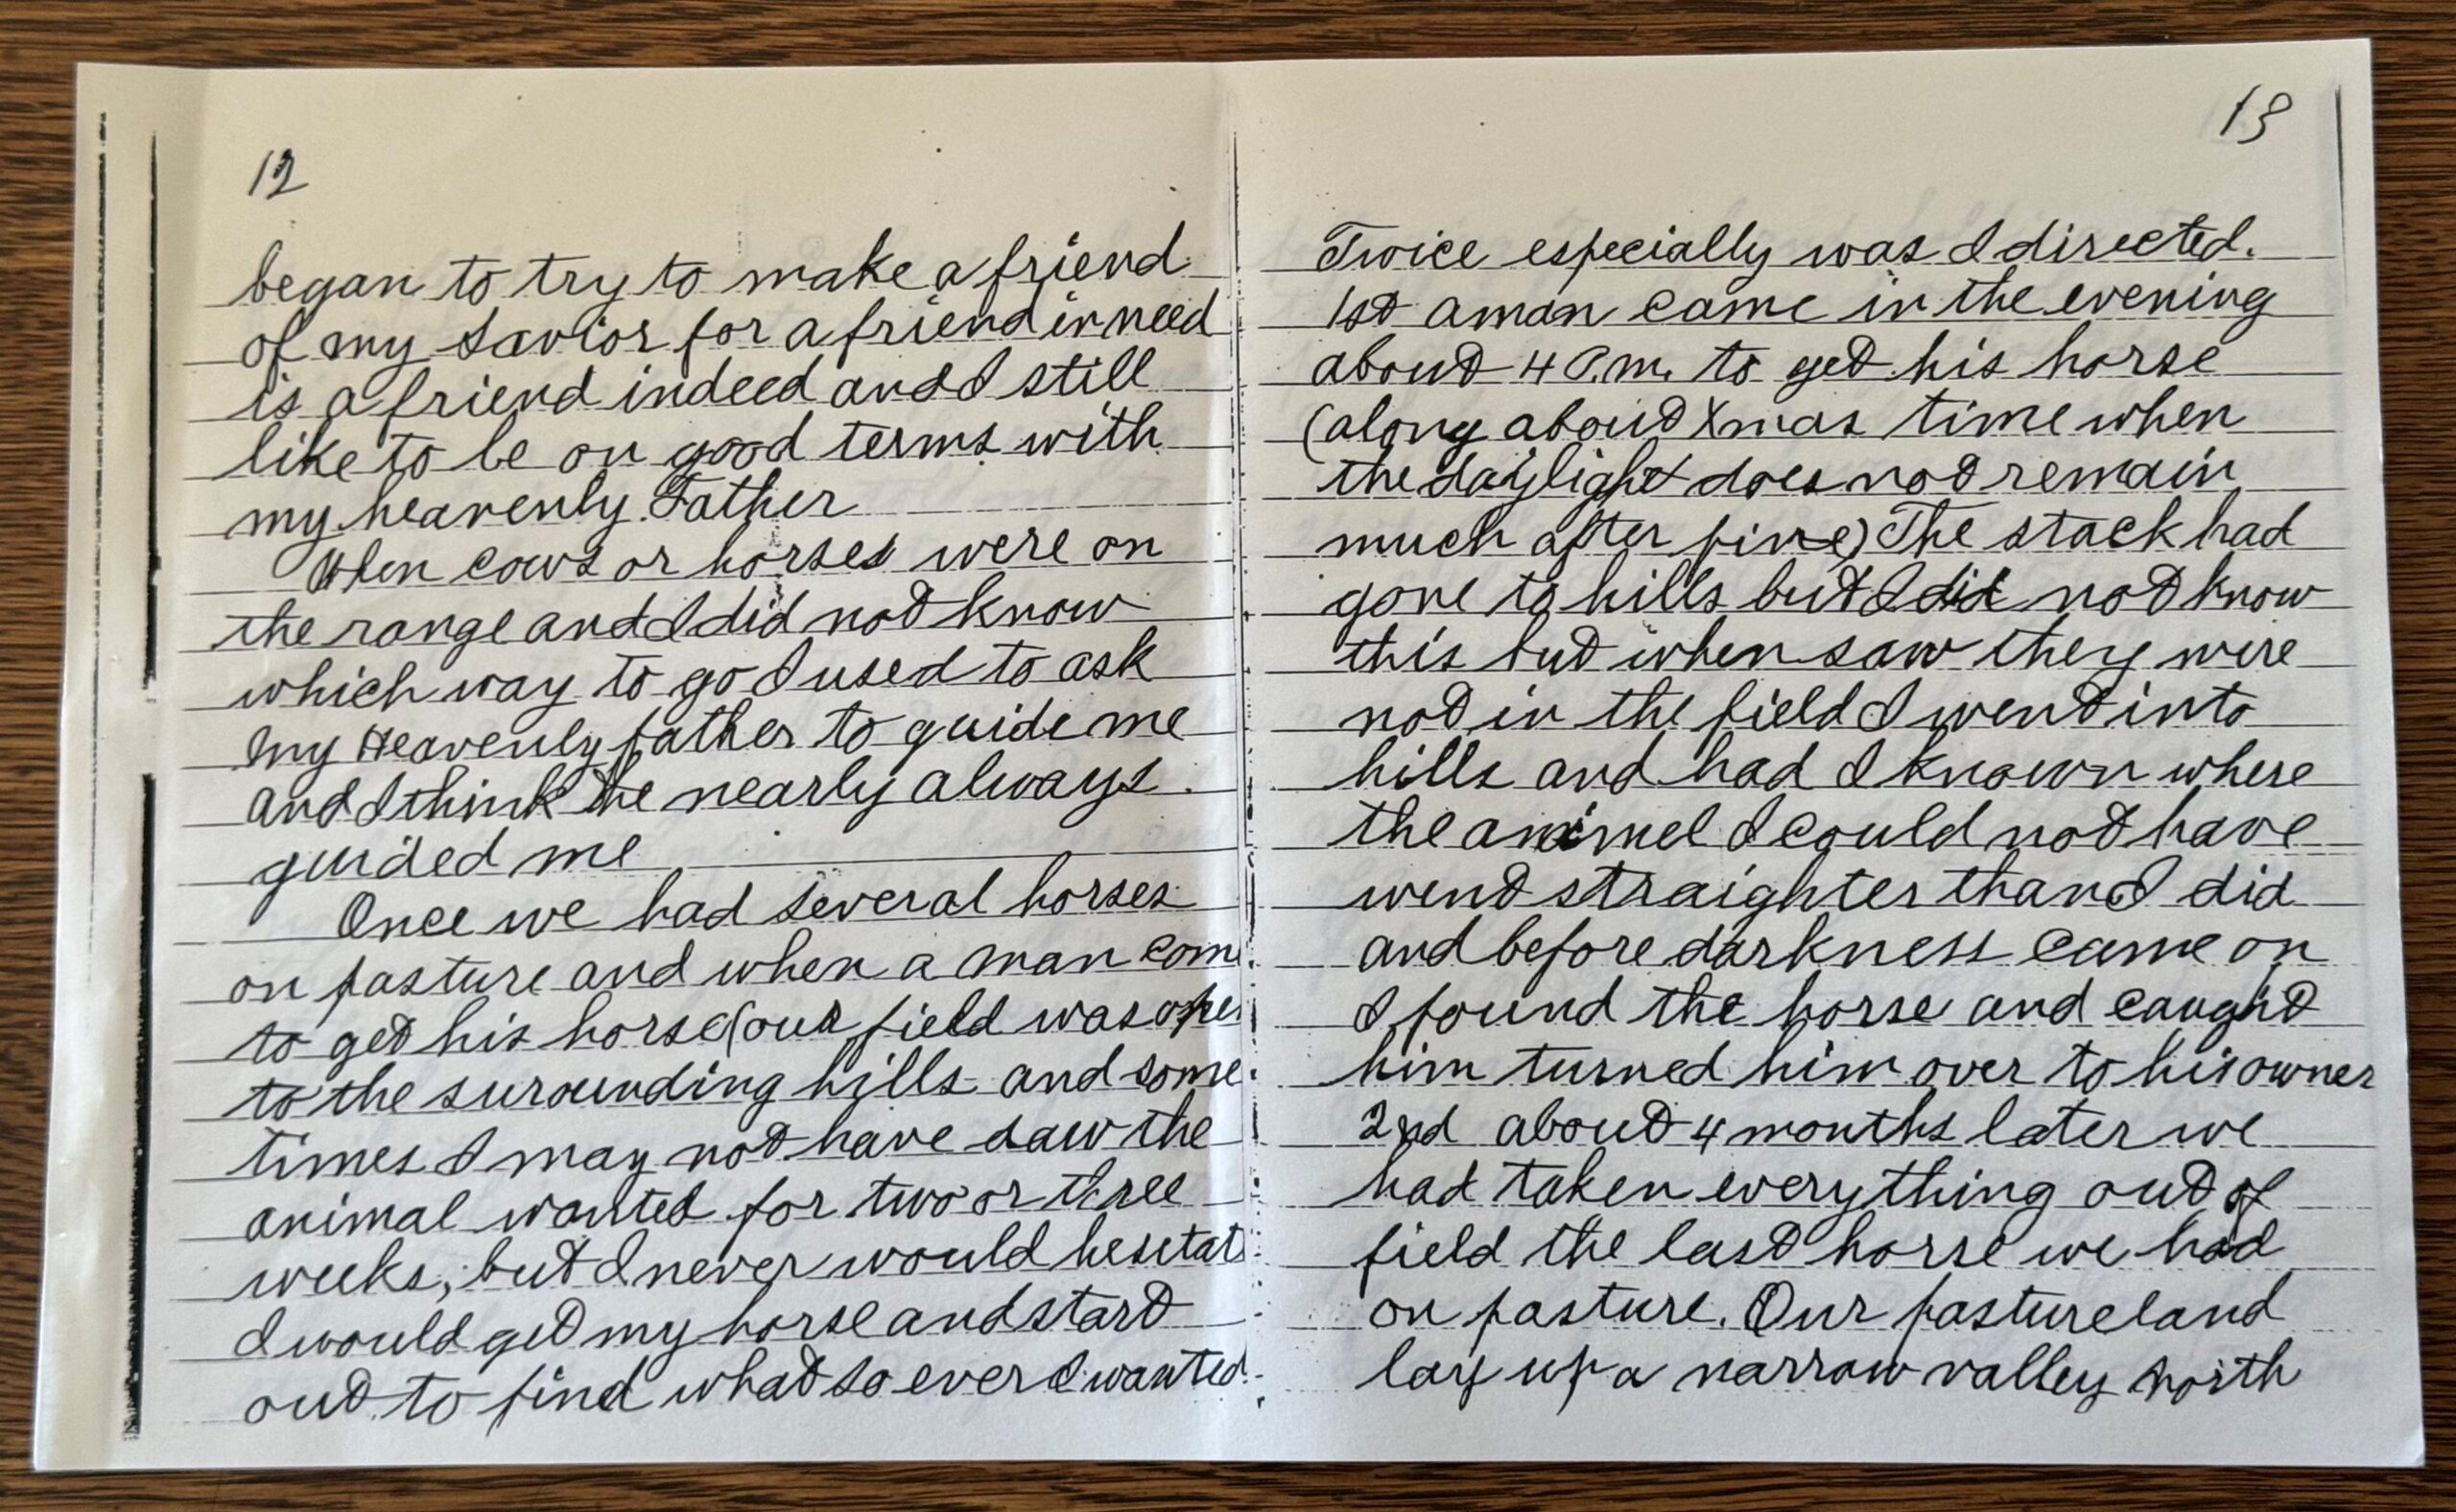 12
began to try to make a friend
of my Savior for a friend in need
is a friend indeed and I still
like to be on good terms with
my heavenly Father
When cows or horses were on
the range and I did not know
which way to go I used to ask
my Heavenly father to guide me
and I think He nearly always
guided me
Once we had several horses
on pasture and when a man com
to get his horse (our field was open
to the surounding hills and some
times I may not have saw the
animal wanted for two or three
weeks, but I never would hesetat
I would get my horse and start
out to find what so ever I wanted.
13
Twice especially was I directed.
1st a man came in the evening
about 4 P.m. to get his horse
(along about Xmas time when
the daylight does not remain
much after five) The stock had
gone to hills but I did not know
this but when saw they were
not in the field I went into
hills and had I known where
the animel I could not have
went straighter than I did
and before darkness came on
I found the horse and caught
him turned him over to his owner
2nd about 4 months later we
had taken everything out of
field the last horse we had
on pasture. Our pastureland
lay up a narrow valley north